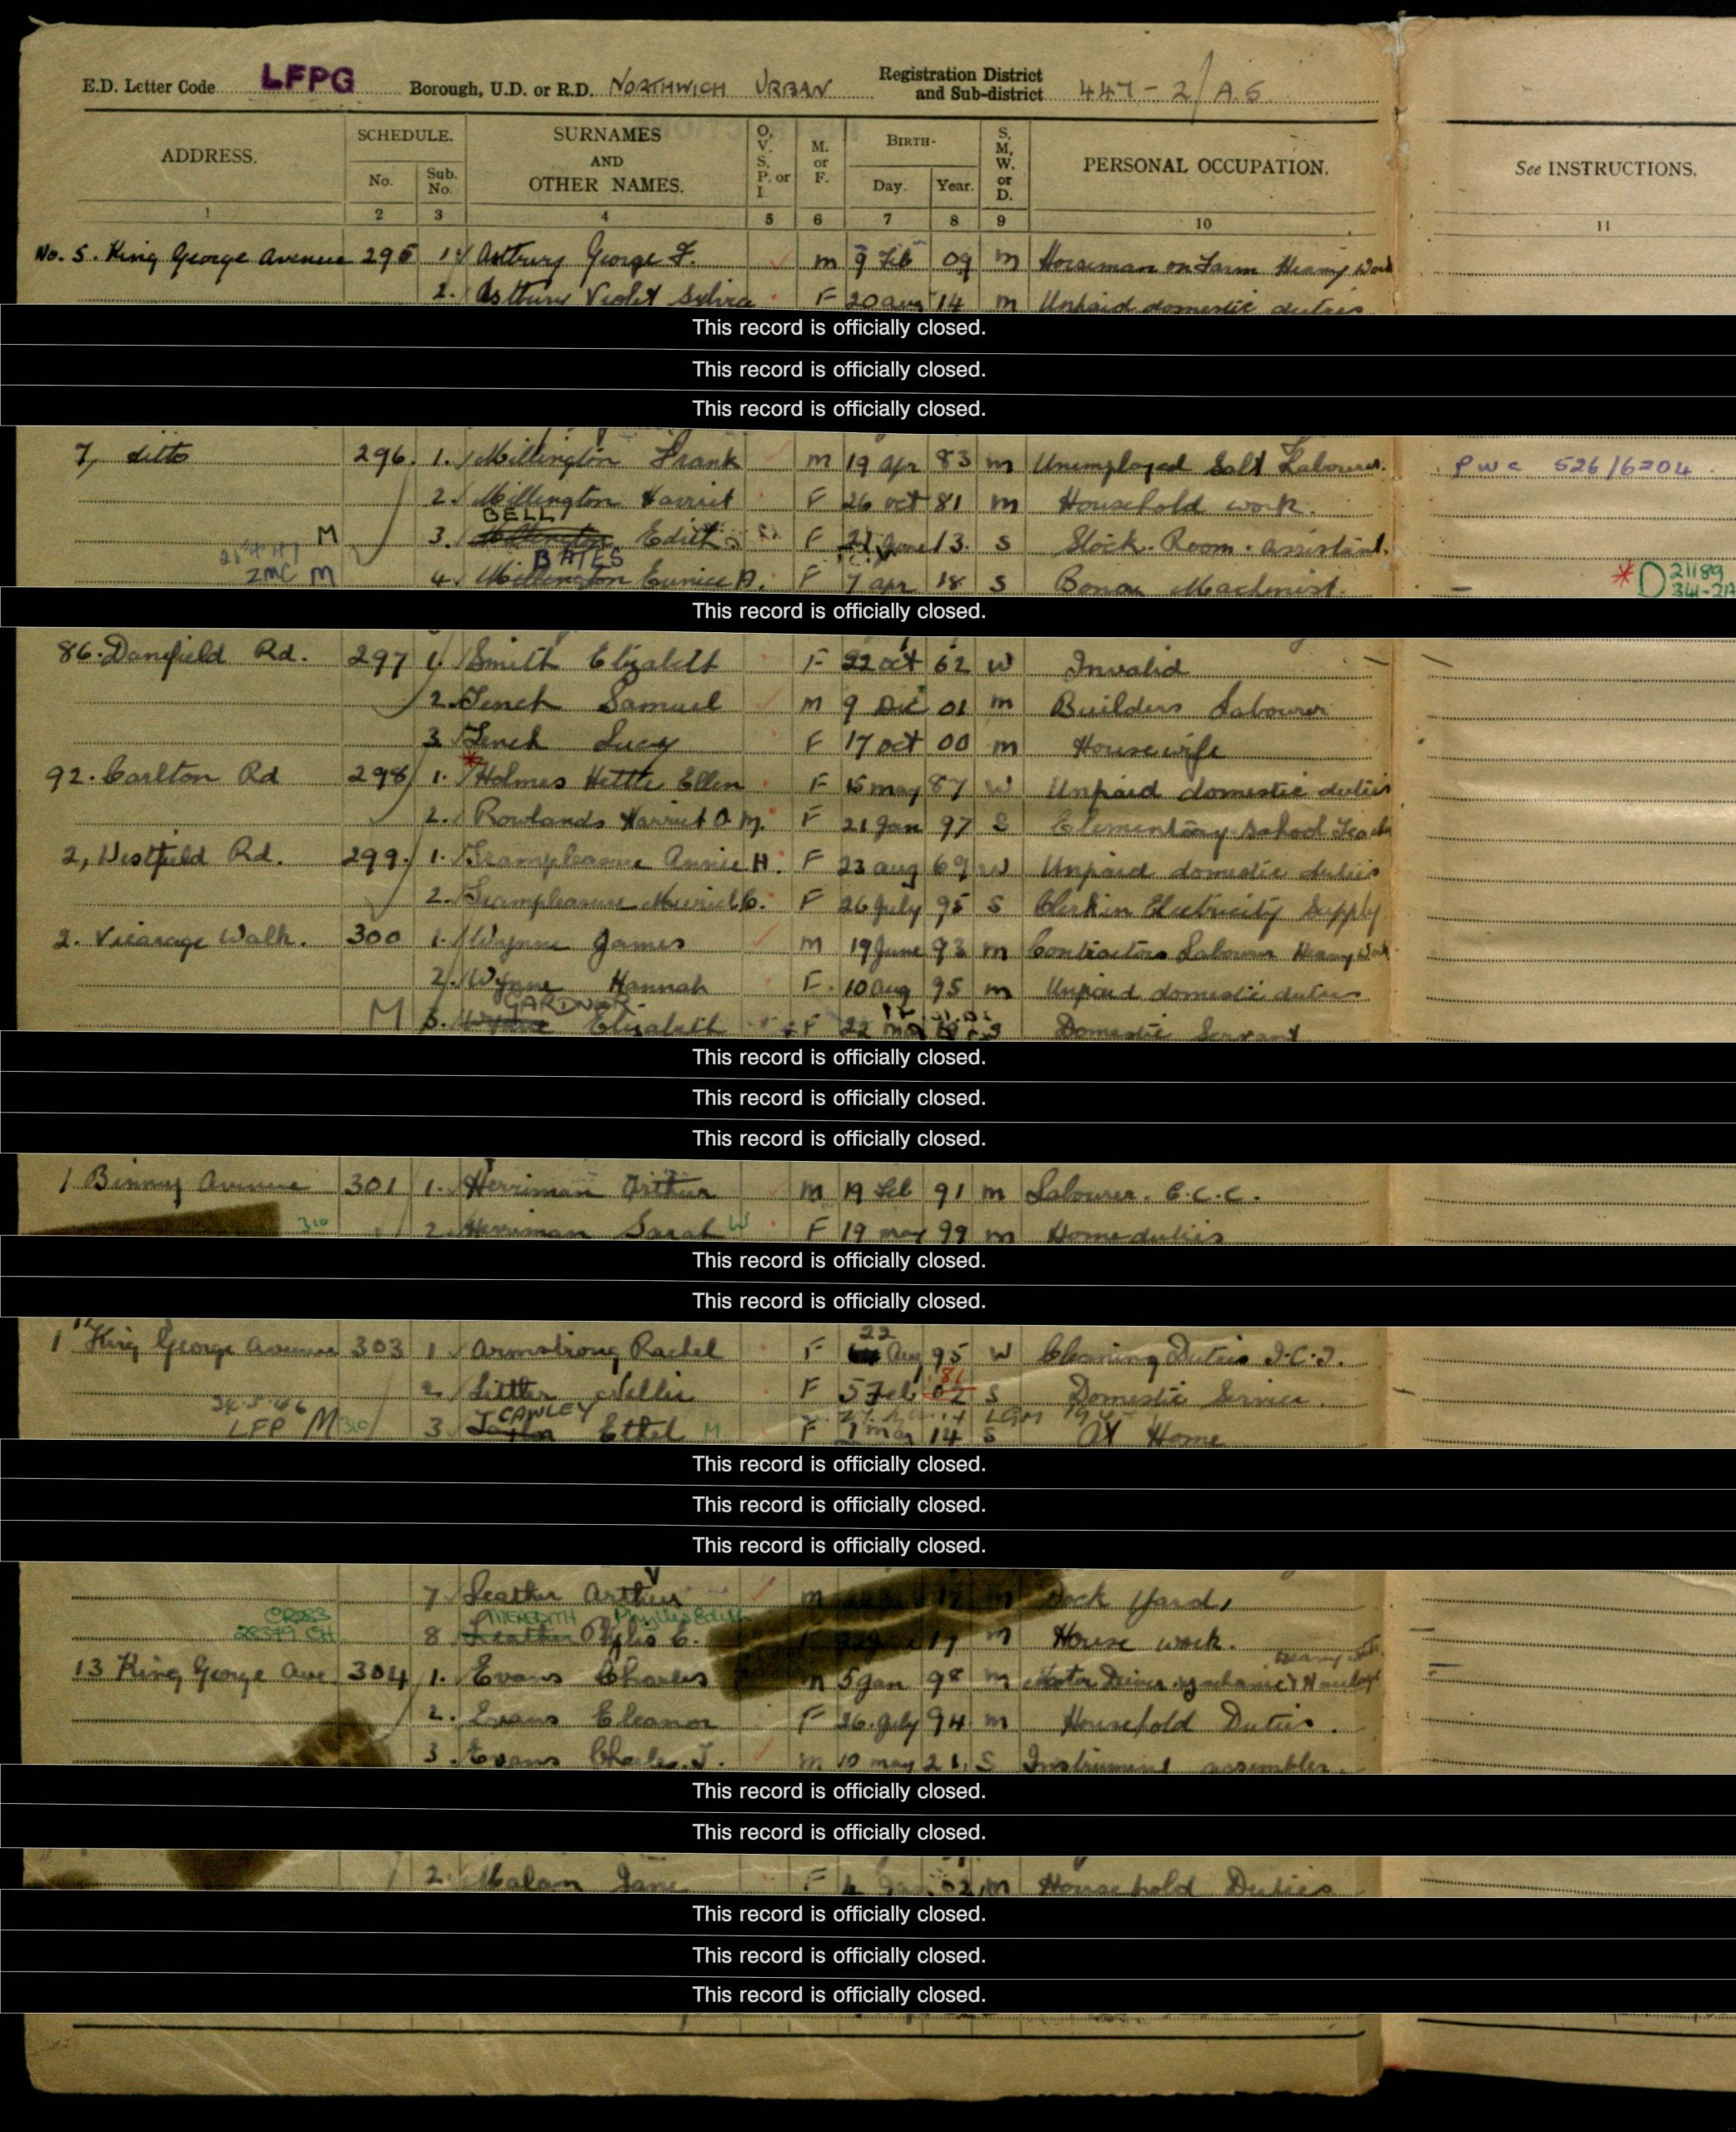 E.D. Letter Code LFPG Borough, U.D. or R.D. NORTHWICH URBAN Registration District and Sub-district 447-2/A.6
ADDRESS. SCHEDULE. No. Sub. No. SURNAMES AND OTHER NAMES. O. V. S. P. or I. M. or F. BIRTH- Day. Year. S. M. W. or D. PERSONAL OCCUPATION. See INSTRUCTIONS.
1 2 3 4 5 6 7 8 9 10 11
No. 5. King George Avenue 295 1 Astbury George F. M 9 Feb 09 M Horseman on Farm Heavy Work
2. Astbury Violet Sylvia F 20 Aug 14 M Unpaid domestic duties
This record is officially closed.
This record is officially closed.
This record is officially closed.
7, ditto 296. 1. Millington Frank M 19 Apr 83 M Unemployed Salt Labourer. PWC 526/6204
2. Millington Harriet F 26 Oct 81 M Household work.
BELL
M 3. Millington Edith F 21 June 13. S Stock. Room. Assistant.
BATES
2MC M 4. Millington Eunice A. F 7 Apr 18 S Machinist. * D 21189
This record is officially closed.
86. Danefield Rd. 297 1. Smith Elizabeth F 22 Oct 62 W Invalid
2. Tench Samuel M 9 Dec 01 M Builders Labourer
3 Tench Lucy F 17 Oct 00 M Housewife
92. Carlton Rd 298 1. * Holmes Hettie Ellen F 15 May 87 W Unpaid domestic duties
2. Rowlands Harriet O M. F 21 Jan 97 S Elementary School Teach
2, Westfield Rd. 299. 1. Annie H. F 23 Aug 69 W Unpaid domestic duties
2. Muriel C. F 26 July 95 S Clerk in Electricity Supply
2. Vicarage Walk. 300 1. Wynne James M 19 June 93 M Contractors Labourer Heavy Work
2. Wynne Hannah F. 10 Aug 95 M Unpaid domestic duties
GARDNER
M 3. Wynne Elizabeth F 22 S Domestic Servant
This record is officially closed.
This record is officially closed.
This record is officially closed.
1 Binney Avenue 301 1. Herriman Arthur M 19 Feb 91 M Labourer. C.C.C.
310 2. Herriman Sarah W F 19 May 99 M Home duties
This record is officially closed.
This record is officially closed.
11 King George Avenue 303 1 Armstrong Rachel F 22 Aug 95 W Cleaning Duties I.C.I.
2. Littler Nellie F 5 Feb 02 81 S Domestic Service.
24.5.46 CAWLEY
LFP M 310 3. Taylor Ethel M F 7 Mar 14 S At Home
This record is officially closed.
This record is officially closed.
This record is officially closed.
7 Leather Arthur M 17 M Dock Yard,
CR283 MEREDITH Phyllis Edith
28379 CH 8 Leather Phylis E. 17 M House work.
13 King George Ave 304 1. Evans Charles M 5 Jan 98 M Motor Driver Mechanic & Haulage Heavy
2. Evans Eleanor F 26. July 94. M Household Duties.
3. Evans Charles. J. M 10 May 21. S Instrument assembler.
This record is officially closed.
This record is officially closed.
2. Malam Jane F 02 M Household Duties
This record is officially closed.
This record is officially closed.
This record is officially closed.